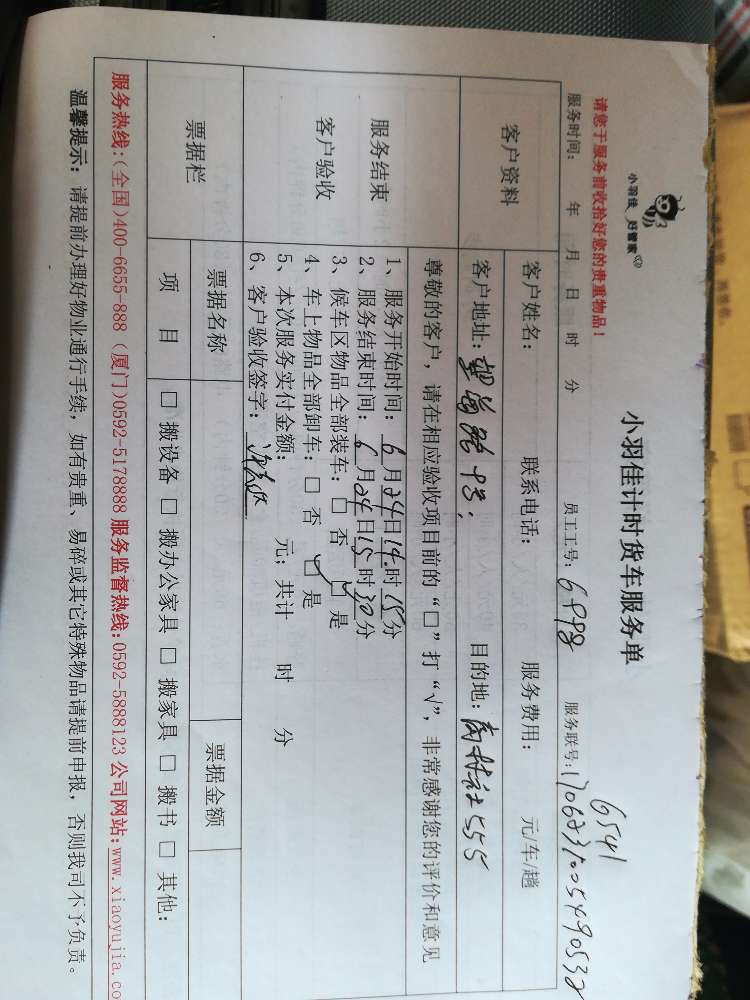 小羽佳 好管家
小羽佳计时货车服务单
6541
请您于服务前收拾好您的贵重物品!
服务时间: 年 月 日 时 分 员工工号: 6998 服务联号:
客户资料
客户姓名: 联系电话: 服务费用: 元/车/趟
客户地址: 目的地: 555
服务结束
客户验收
尊敬的客户，请在相应验收项目前的“□”打“√”，非常感谢您的评价和意见
1、服务开始时间: 6月24日14时15分
2、服务结束时间: 6月24日15时30分
3、候车区物品全部装车: □ 否 ☑ 是
4、车上物品全部卸车: □ 否 ☑ 是
5、本次服务实付金额: 元; 共计 时 分
6、客户验收签字:
票据栏
票据名称 票据金额
项 目 □ 搬设备 □ 搬办公家具 □ 搬家具 □ 搬书 □ 其他:
服务热线:(全国)400-6655-888 (厦门)0592-5178888 服务监督热线:0592-5888123 公司网站:www.xiaoyujia.co
温馨提示: 请提前办理好物业通行手续，如有贵重、易碎或其它特殊物品请提前申报，否则我司不予负责。